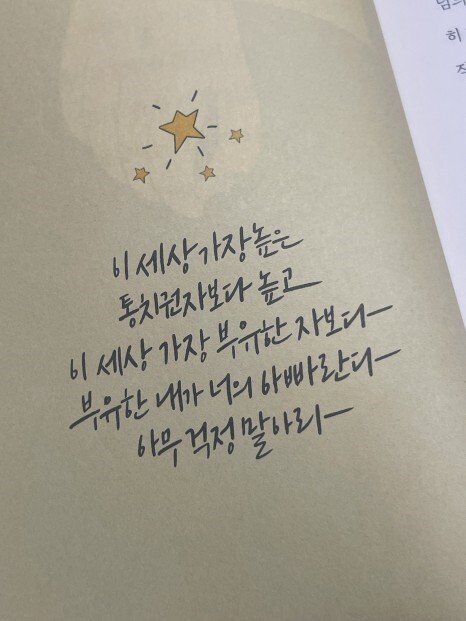 이 세상 가장 높은
통치권자보다 높고
이 세상 가장 부유한 자보다
부유한 내가 너의 아빠란다
아무 걱정 말아라
히